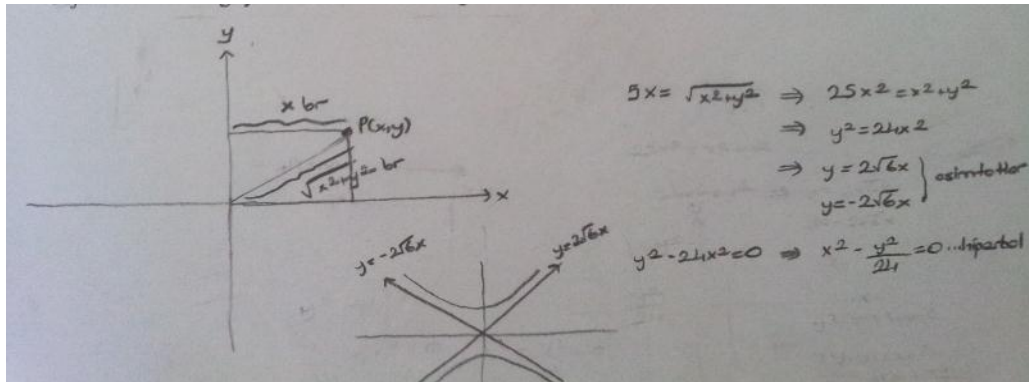 y
x br
P(x,y)
√x²+y² br
x
5x = √x²+y² ⇒ 25x² = x²+y²
⇒ y² = 24x²
⇒ y = 2√6x
y = -2√6x } asimtotlar
y² - 24x² = 0 ⇒ x² - y²/24 = 0 ...hiperbol
y = -2√6x
y = 2√6x